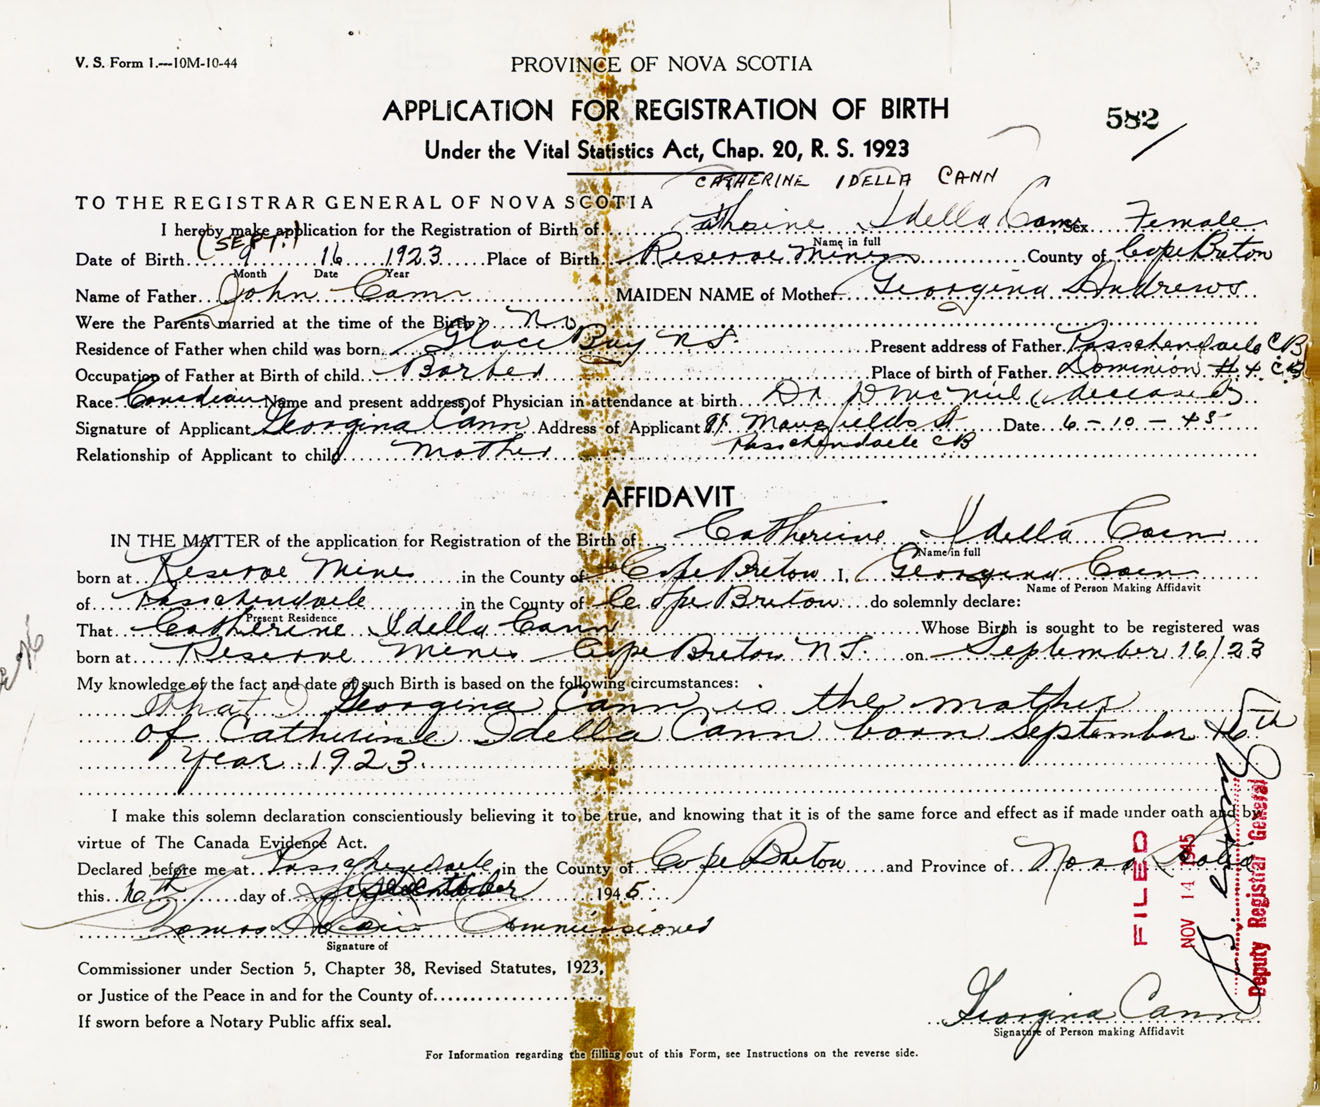 V. S. Form 1.—10M-10-44
PROVINCE OF NOVA SCOTIA
APPLICATION FOR REGISTRATION OF BIRTH
582
Under the Vital Statistics Act, Chap. 20, R. S. 1923
CATHERINE IDELLA CANN
TO THE REGISTRAR GENERAL OF NOVA SCOTIA
I hereby make application for the Registration of Birth of Cathreine Idella Cann Sex Female
Name in full
(SEPT.)
Date of Birth 9 16 1923 Place of Birth Reserve Mines County of Cape Breton
Month Date Year
Name of Father John Cann MAIDEN NAME of Mother Georgina Andrews
Were the Parents married at the time of the Birth? No
Residence of Father when child was born Glace Bay N.S. Present address of Father Passchendaele C B
Occupation of Father at Birth of child Barber Place of birth of Father Dominion # 4 C.B
Race Canadian Name and present address of Physician in attendance at birth Dr D McNeil (deceased)
Signature of Applicant Georgina Cann Address of Applicant St Date 6 - 10 - 45
Passchendaele C B
Relationship of Applicant to child Mother
AFFIDAVIT
IN THE MATTER of the application for Registration of the Birth of Catherine Idella Cann
Name in full
born at Reserve Mines in the County of Cape Breton I, Georgina Cann
Name of Person Making Affidavit
of Passchendaele in the County of Cape Breton do solemnly declare:
Present Residence
That Catherine Idella Cann Whose Birth is sought to be registered was
born at Reserve Mines Cape Breton N.S. on September 16/23
My knowledge of the fact and date of such Birth is based on the following circumstances:
that I Georgina Cann is the mother
of Catherine Idella Cann born September 16th
Year 1923.
I make this solemn declaration conscientiously believing it to be true, and knowing that it is of the same force and effect as if made under oath and by
virtue of The Canada Evidence Act.
Declared before me at Passchendaele in the County of Cape Breton and Province of Nova Scotia
this 6th day of 1945
Commissioner
Signature of
Commissioner under Section 5, Chapter 38, Revised Statutes, 1923,
or Justice of the Peace in and for the County of
If sworn before a Notary Public affix seal.
Georgina Cann
Signature of Person making Affidavit
For Information regarding the filling out of this Form, see Instructions on the reverse side.
FILED
NOV 14 1945
Deputy Registrar General